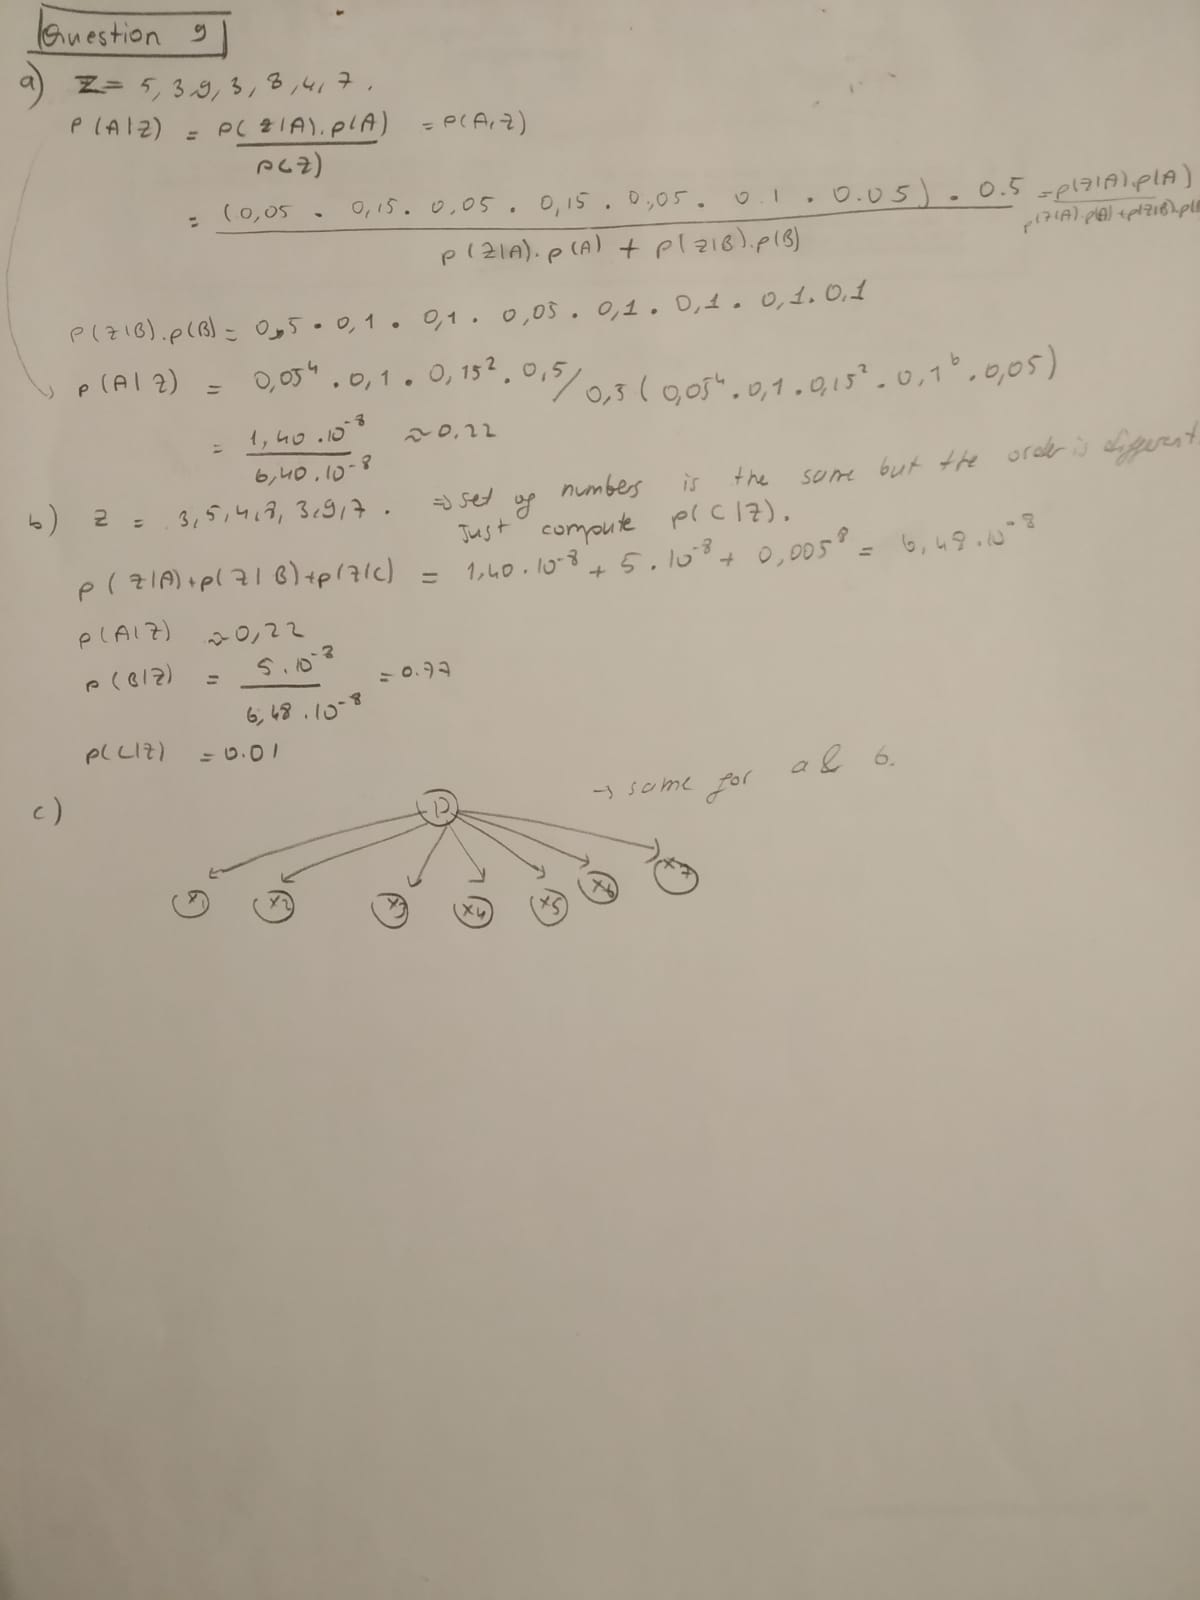 Question 9
a) Z = 5, 3, 9, 3, 8, 4, 7.
P(A|Z) = P(Z|A).P(A) = P(A,Z)
P(Z)
= (0,05 . 0,15 . 0,05 . 0,15 . 0,05 . 0.1 . 0.05) . 0.5 = P(Z|A).P(A)
P(Z|A).P(A) + P(Z|B).P(B) P(Z|A).P(A)+P(Z|B).P(B
P(Z|B).P(B) = 0,5 . 0,1 . 0,1 . 0,05 . 0,1 . 0,1 . 0,1 . 0,1
P(A|Z) = 0,05⁴ . 0,1 . 0,15² . 0,5 / 0,5 (0,05⁴ . 0,1 . 0,15² . 0,1⁶ . 0,05)
= 1,40 . 10⁻⁸ ≈ 0.22
6,40 . 10⁻⁸
b) Z = 3, 5, 4, 8, 3, 9, 7. ⇒ set of numbers is the same but the order is different.
Just compute P(C|Z).
P(Z|A)+P(Z|B)+P(Z|C) = 1,40 . 10⁻⁸ + 5 . 10⁻⁸ + 0,005⁸ = 6,48 . 10⁻⁸
P(A|Z) ≈ 0,22
P(B|Z) = 5 . 10⁻⁸ = 0.77
6,48 . 10⁻⁸
P(C|Z) = 0.01
→ same for a & b.
c) D
x1 x2 x3 x4 x5 x6 x7